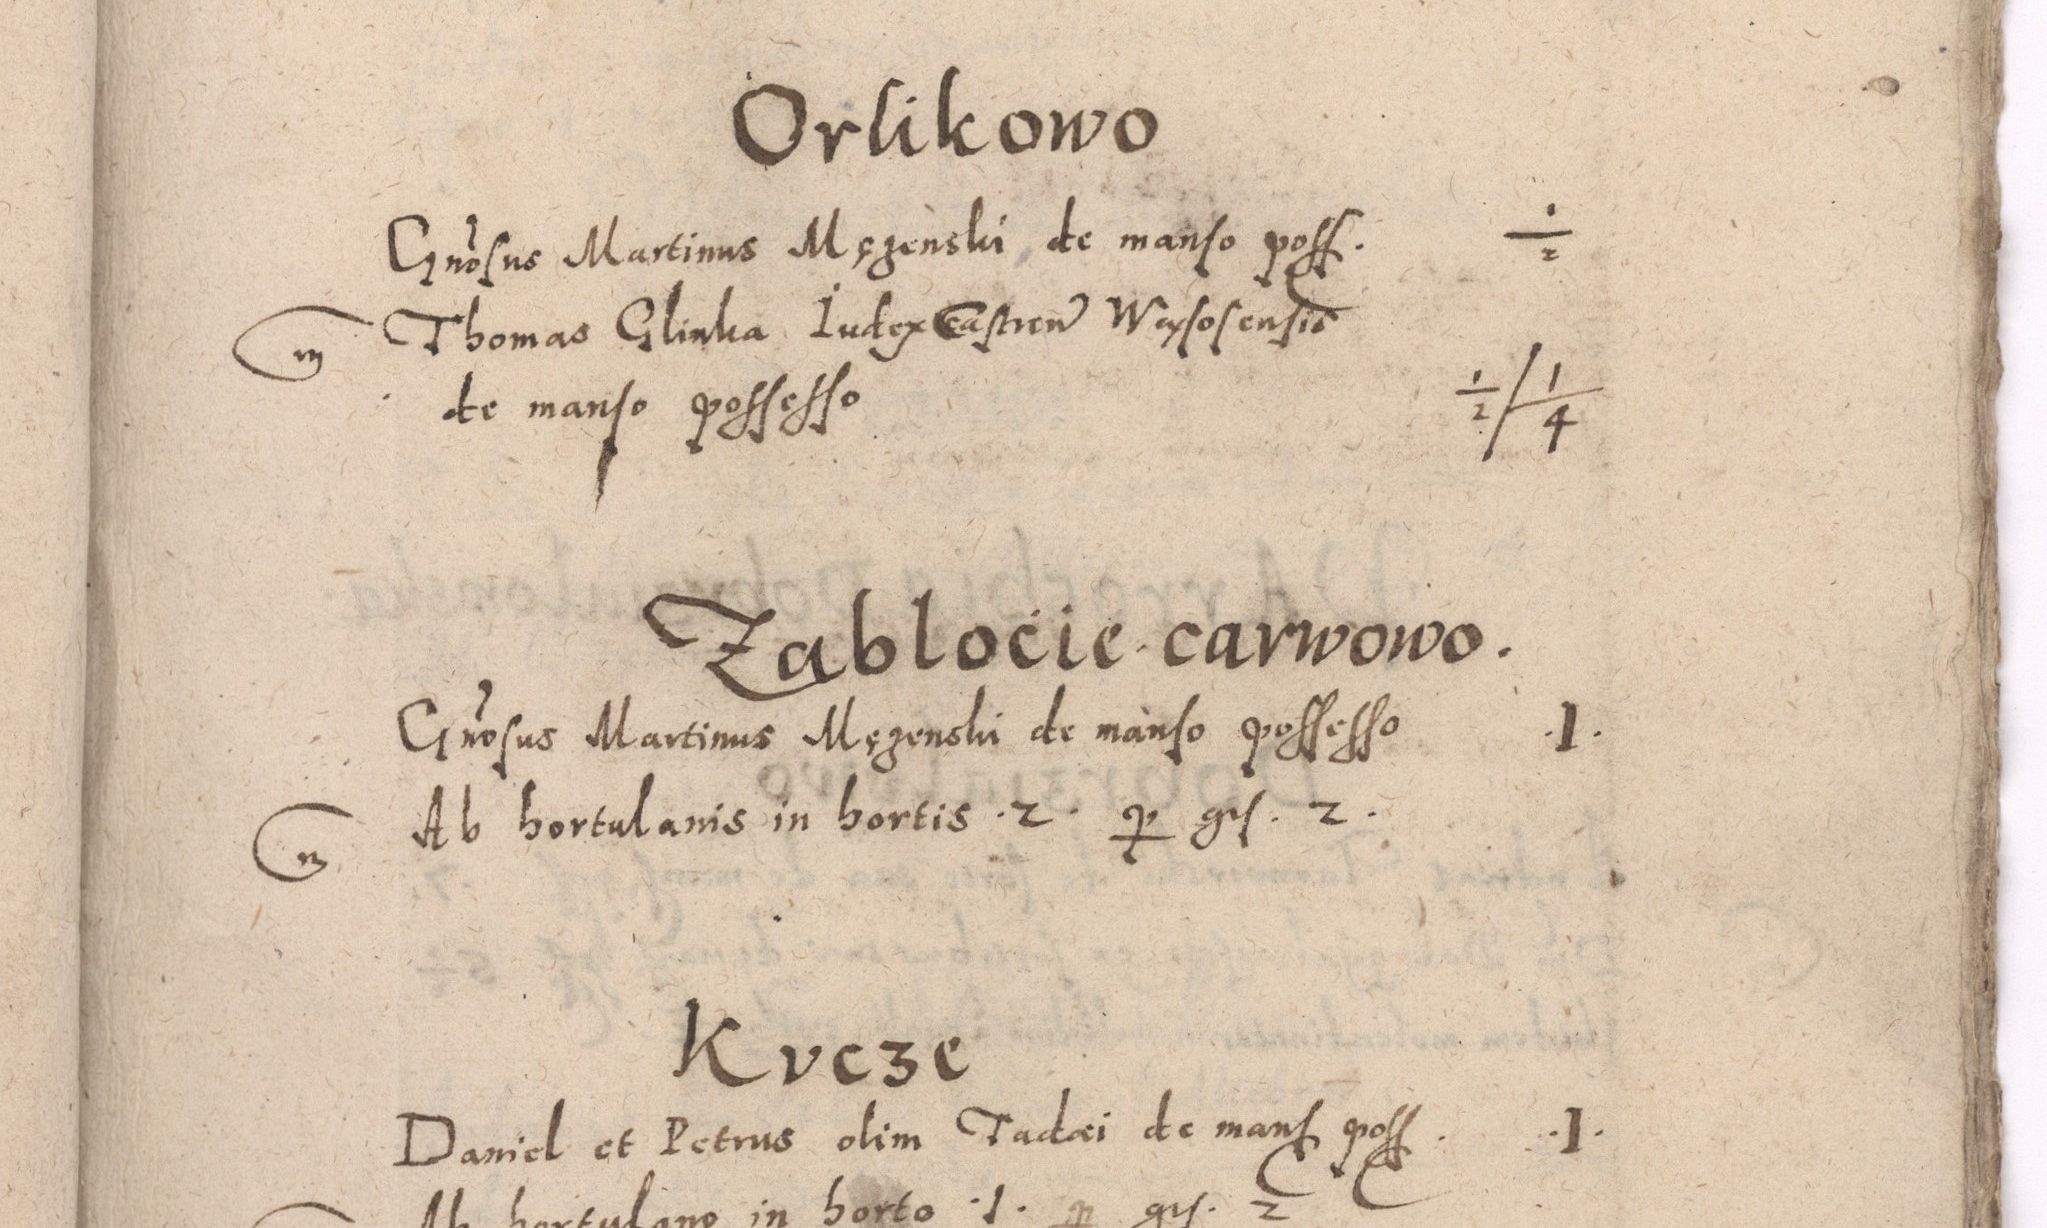 Orlikowo
Gnõsus Martinus Mężenski de manso poss. 1/2
m Thomas Glinka Iudex Castren Wąsosensis
de manso possesso 1/2 / 1/4
Zabłocie carwowo.
Gnõsus Martinus Mężenski de manso possesso .1.
m Ab hortulanis in hortis .2. p gr. 2.
Kvcze
Daniel et Petrus olim Tadæi de mans poss. .1.
Ab hortulano in horto .1. p gr. 2